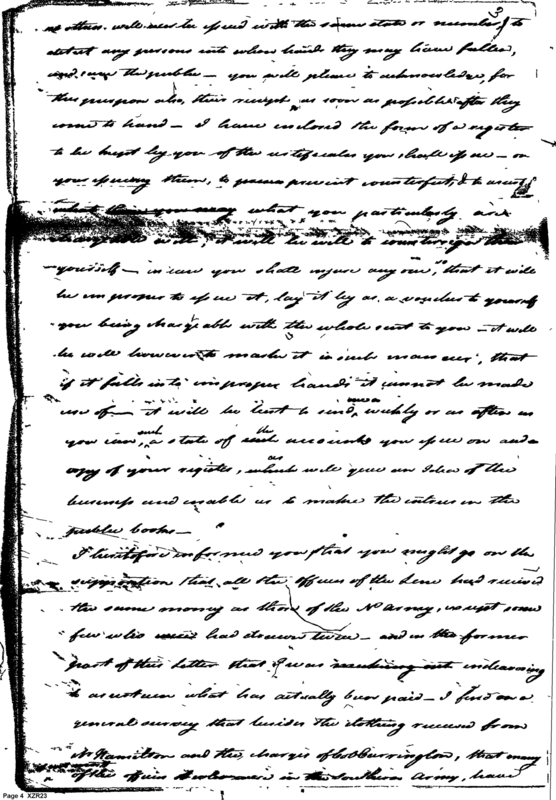 no others will ever be issued with the same state or number, to
detect any persons into whose hands they may have fallen,
and save the public — you will please to acknowledge, for
this purpose also, their receipt as soon as possible after they
come to hand — I have inclosed the form of a register
to be kept by you of the certificates you shall issue — on
your issuing them, to prevent counterfeits, & to
what you particularly are
chargeable with, it will be well to countersign them
yourself — in case you shall injure any one, so that it will
be improper to issue it, lay it by as a voucher to yourself
you being chargeable with the whole sent to you — it will
be well however to mark it in such manner, that
if it falls into improper hands it cannot be made
use of — it will be best to send weekly or as often as
you can, a state of the accounts you issue on and a
copy of your register, which will give an Idea of the
business and enable us to make the entries in the
public books —
I heretofore informed you, that you might go on the
supposition that all the officers of the Line had received
the same money as those of the No Army, except some
few who had drawn twice — and in the former
part of this letter that I was endeavoring
to ascertain what has actually been paid — I find on a
general survey that besides the clothing received from
Mr Hamilton and the charges of Col Carrington, that many
of the officers in the Southern Army, have
Page 4 XZR23